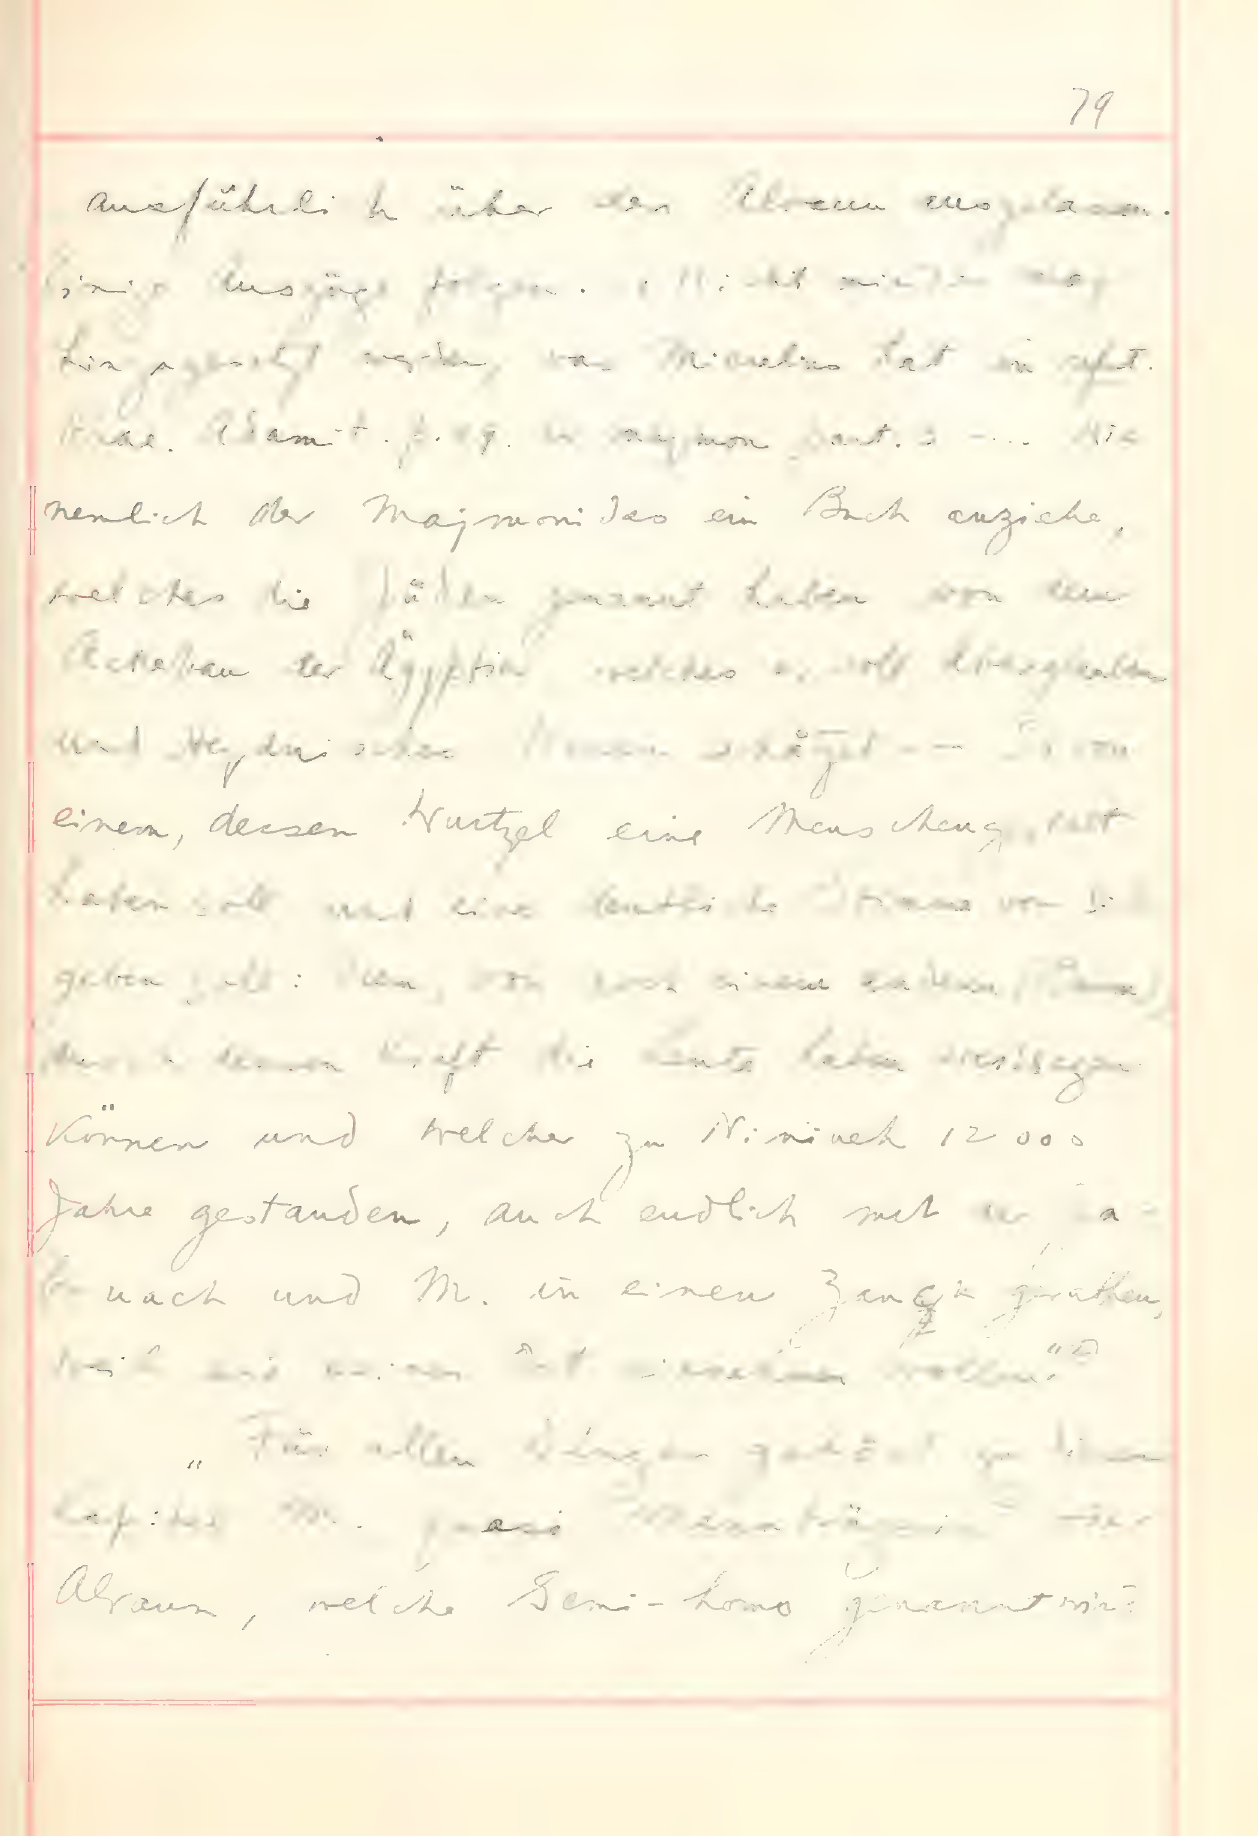 79
ausführlich über den Alraun ausgelassen.
Einige Auszüge folgen. Nicht minder mag
hinzugesetzt werden, was Micrelius hat in
p. 29. part.
nemlich der Majmonides ein Buch anziehe,
welches die Jüden genannt haben von dem
Ackerbau der Ägyptier welches er voll Aberglauben
und Heydnischen schätzet -- 
einem, dessen Wurtzel eine Menschengestalt
haben soll und eine deutliche Stimme von sich
geben soll: von noch einem andern
durch dessen Kraft die Leute haben weissagen
können und welcher zu Niniveh 12000
Jahre gestanden, auch endlich mit der
nach und M. in einen Zanck gerathen,
weil wollen."
„Für allen Dingen gehört zu diesem
Kapitel M. quasi oder
Alraun, welche Semi-homo genannt wird